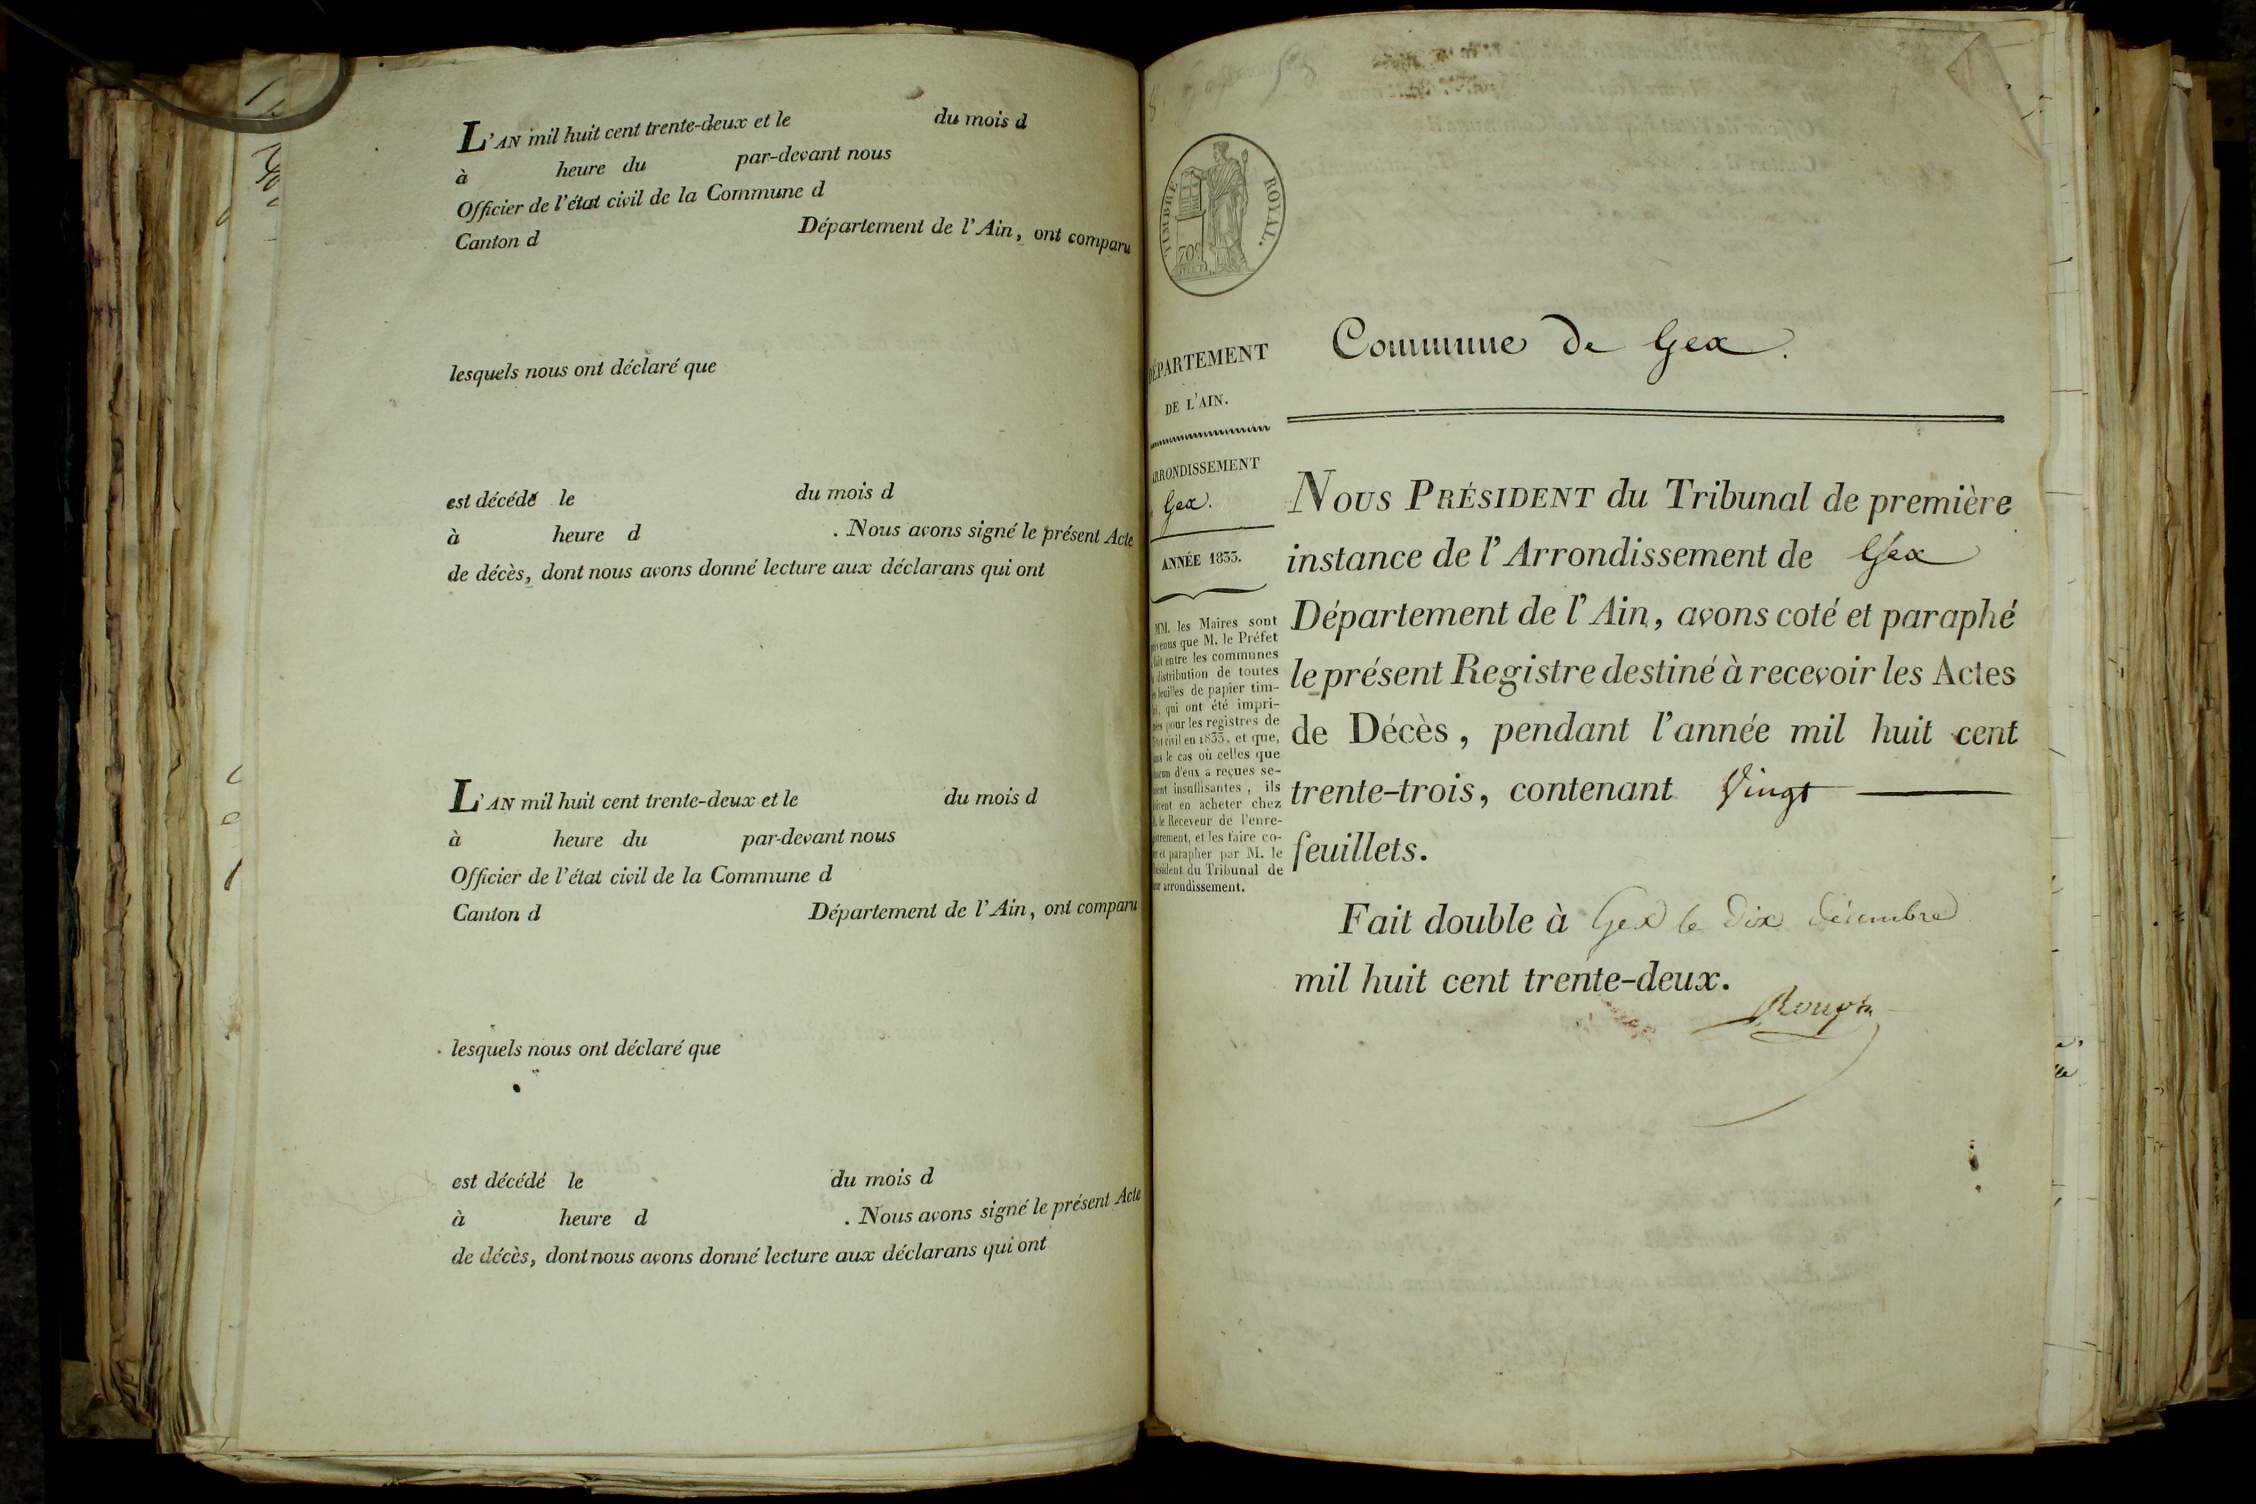 L'AN mil huit cent trente-deux et le du mois d
à heure du par-devant nous
Officier de l'état civil de la Commune d
Canton d Département de l'Ain, ont comparu
lesquels nous ont déclaré que
est décédé le du mois d
à heure d . Nous avons signé le présent Acte
de décès, dont nous avons donné lecture aux déclarans qui ont
L'AN mil huit cent trente-deux et le du mois d
à heure du par-devant nous
Officier de l'état civil de la Commune d
Canton d Département de l'Ain, ont comparu
lesquels nous ont déclaré que
est décédé le du mois d
à heure d . Nous avons signé le présent Acte
de décès, dont nous avons donné lecture aux déclarans qui ont
TIMBRE ROYAL.
70c
DÉPARTEMENT
DE L'AIN.
ARRONDISSEMENT
Gex.
ANNÉE 1833.
MM. les Maires sont
que M. le Préfet
fait entre les communes
distribution de toutes
feuilles de papier tim-
qui ont été impri-
pour les registres de
civil en 1833, et que,
le cas où celles que
d'eux a reçues se-
insuffisantes, ils
en acheter chez
le Receveur de l'enre-
et les faire co-
et parapher par M. le
Président du Tribunal de
arrondissement.
Commune de Gex.
NOUS PRÉSIDENT du Tribunal de première
instance de l'Arrondissement de Gex
Département de l'Ain, avons coté et paraphé
le présent Registre destiné à recevoir les Actes
de Décès, pendant l'année mil huit cent
trente-trois, contenant Vingt
feuillets.
Fait double à Gex le dix décembre
mil huit cent trente-deux.